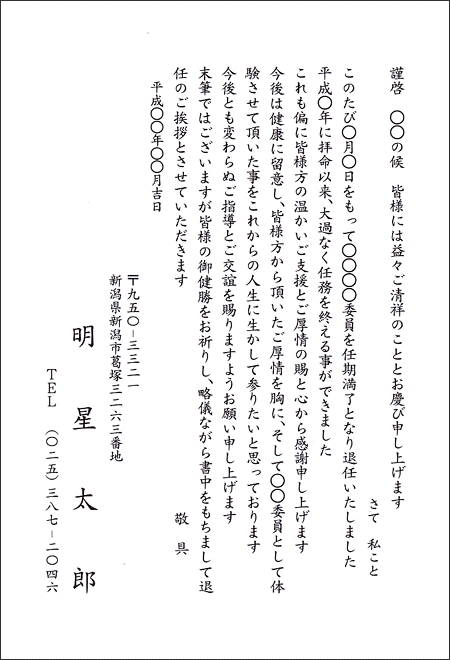 謹啓　〇〇の候　皆様には益々ご清祥のこととお慶び申し上げます
さて　私こと
このたび〇月〇日をもって〇〇〇〇委員を任期満了となり退任いたしました
平成〇年に拝命以来、大過なく任務を終える事ができました
これも偏に皆様方の温かいご支援とご厚情の賜と心から感謝申し上げます
今後は健康に留意し、皆様方から頂いたご厚情を胸に、そして〇〇委員として体
験させて頂いた事をこれからの人生に生かして参りたいと思っております
今後とも変わらぬご指導とご交誼を賜りますようお願い申し上げます
末筆ではございますが皆様の御健勝をお祈りし、略儀ながら書中をもちまして退
任のご挨拶とさせていただきます
敬具
平成〇〇年〇〇月吉日
〒九五〇－三三二一
新潟県新潟市葛塚三二六三番地
明星太郎
TEL（〇二五）三八七－二〇四六